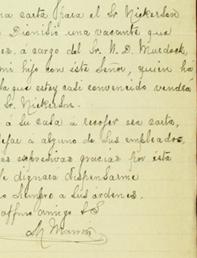 una carta para el Sr Nickerson
Dionisio una vacante que
es, á cargo del Sr. W. D. Murdock,
mi hijo con este Señor, quien há
da que estoy casi convenido vendrá
Sr. Nickerson.
á su casa á recojer esa carta,
dejar a alguno de sus empleados,
es espresivas gracias por esta
se dignará dispensarme
siempre a sus órdenes.
affmo amigo y S.
M. Marron